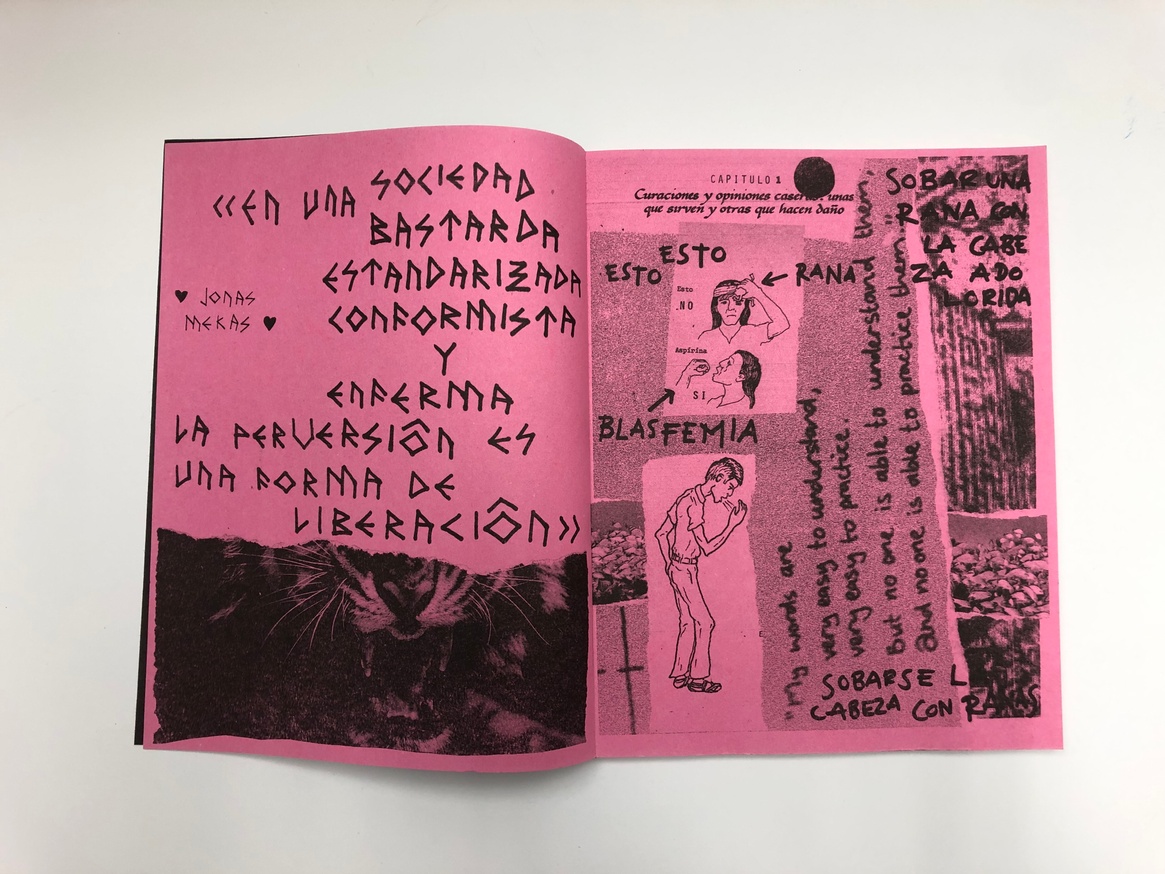 «EN UNA SOCIEDAD
BASTARDA
ESTANDARIZADA
CONFORMISTA
Y
ENFERMA
LA PERVERSIÔN ES
UNA FORMA DE
LIBERACIÔN»
♥ JONAS
MEKAS ♥
CAPITULO 1
Curaciones y opiniones caseras: unas
que sirven y otras que hacen daño
ESTO ESTO
RANA
Esto
NO
Aspirina
SI
BLASFEMIA
"My words are
very easy to understand,
very easy to practice.
But no one is able to understand them,
and no one is able to practice them."
SOBAR UNA
RANA CON
LA CABE
ZA ADO
LORIDA
SOBARSE L
CABEZA CON RANAS